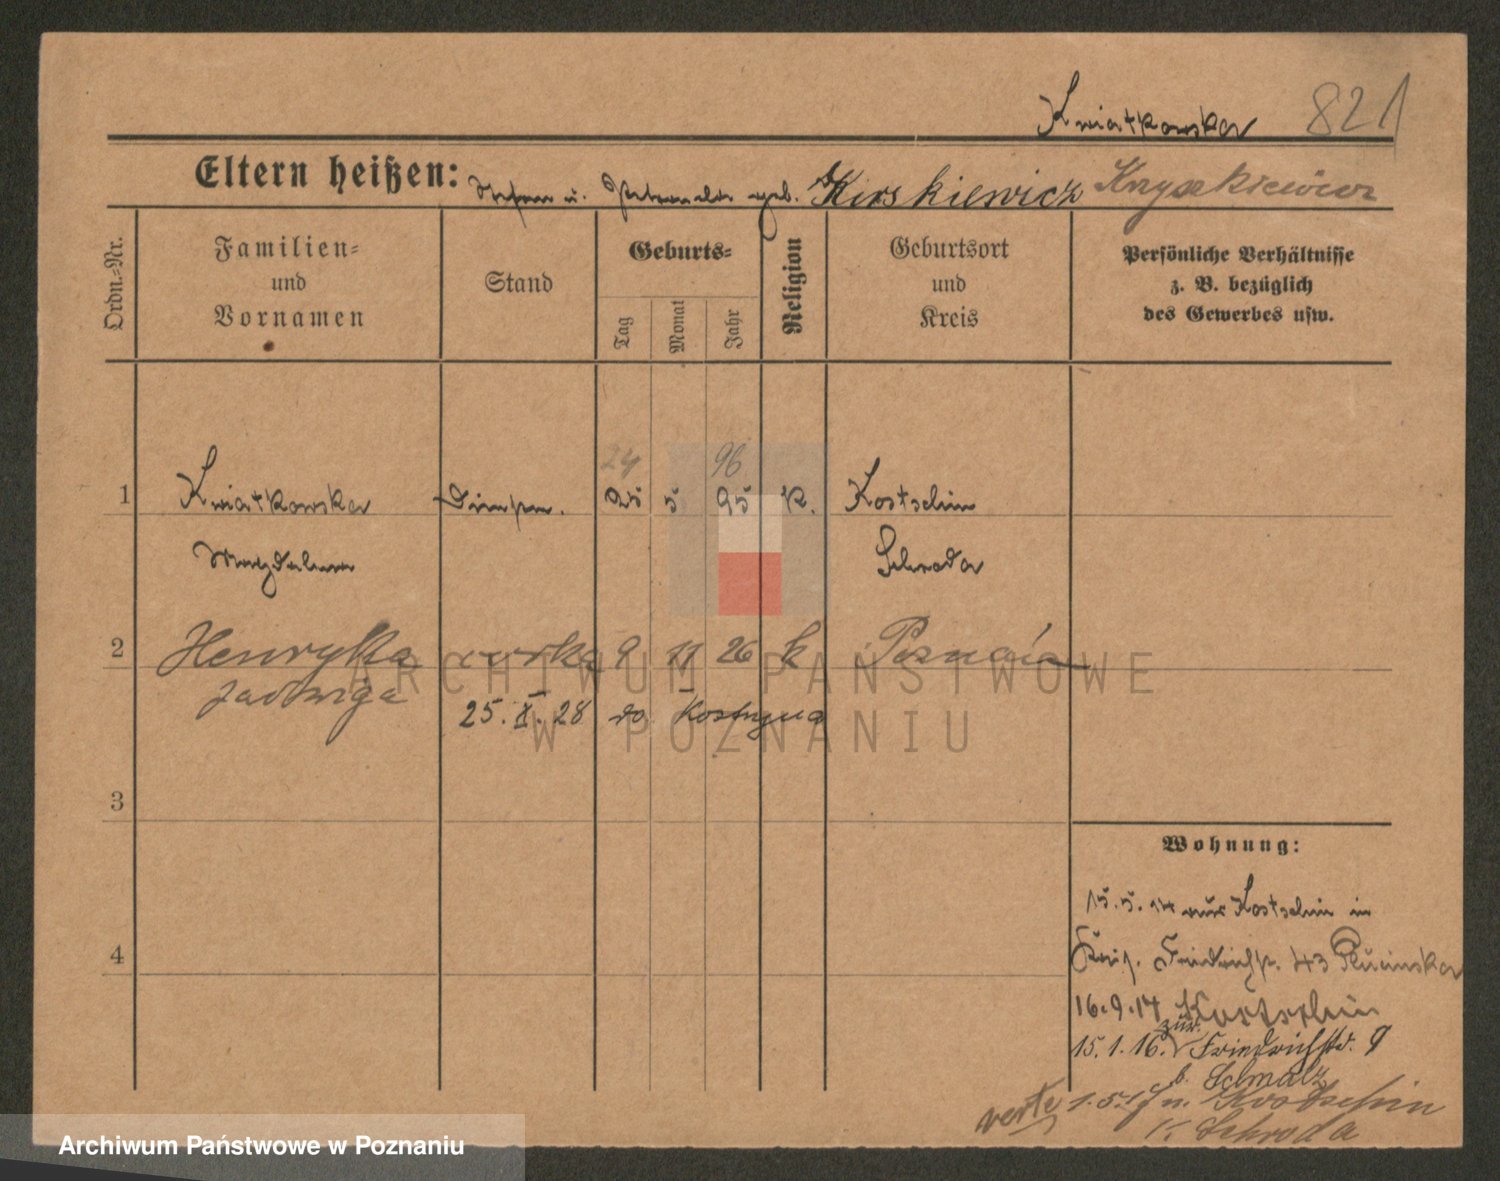 Kwiatkowska 821
Eltern heißen: Stefan u. Petronela geb. Kirskiewicz Knyszkiewicz
Ordn.-Nr.
Familien-
und
Vornamen
Stand
Geburts-
Tag
Monat
Jahr
Religion
Geburtsort
und
Kreis
Persönliche Verhältnisse
z. B. bezüglich
des Gewerbes usw.
24 96
1 Kwiatkowska Dienstm. 25 5 95 K. Kostschin
Magdalena Schroda
2 Henryka córka 9 11 26 k Poznań
Jadwiga
25. X. 28 do Kostrzyna
3
4
Wohnung:
15.5.14 aus Kostschin in
Friedrichstr. 43 Plucinska
16.9.14 Kostschin
zur.
15.1.16. Friedrichstr. 9
b. Schmalz
verte 1.5.17 n. Kostschin
K Schroda
ARCHIWUM PAŃSTWOWE
W POZNANIU
Archiwum Państwowe w Poznaniu